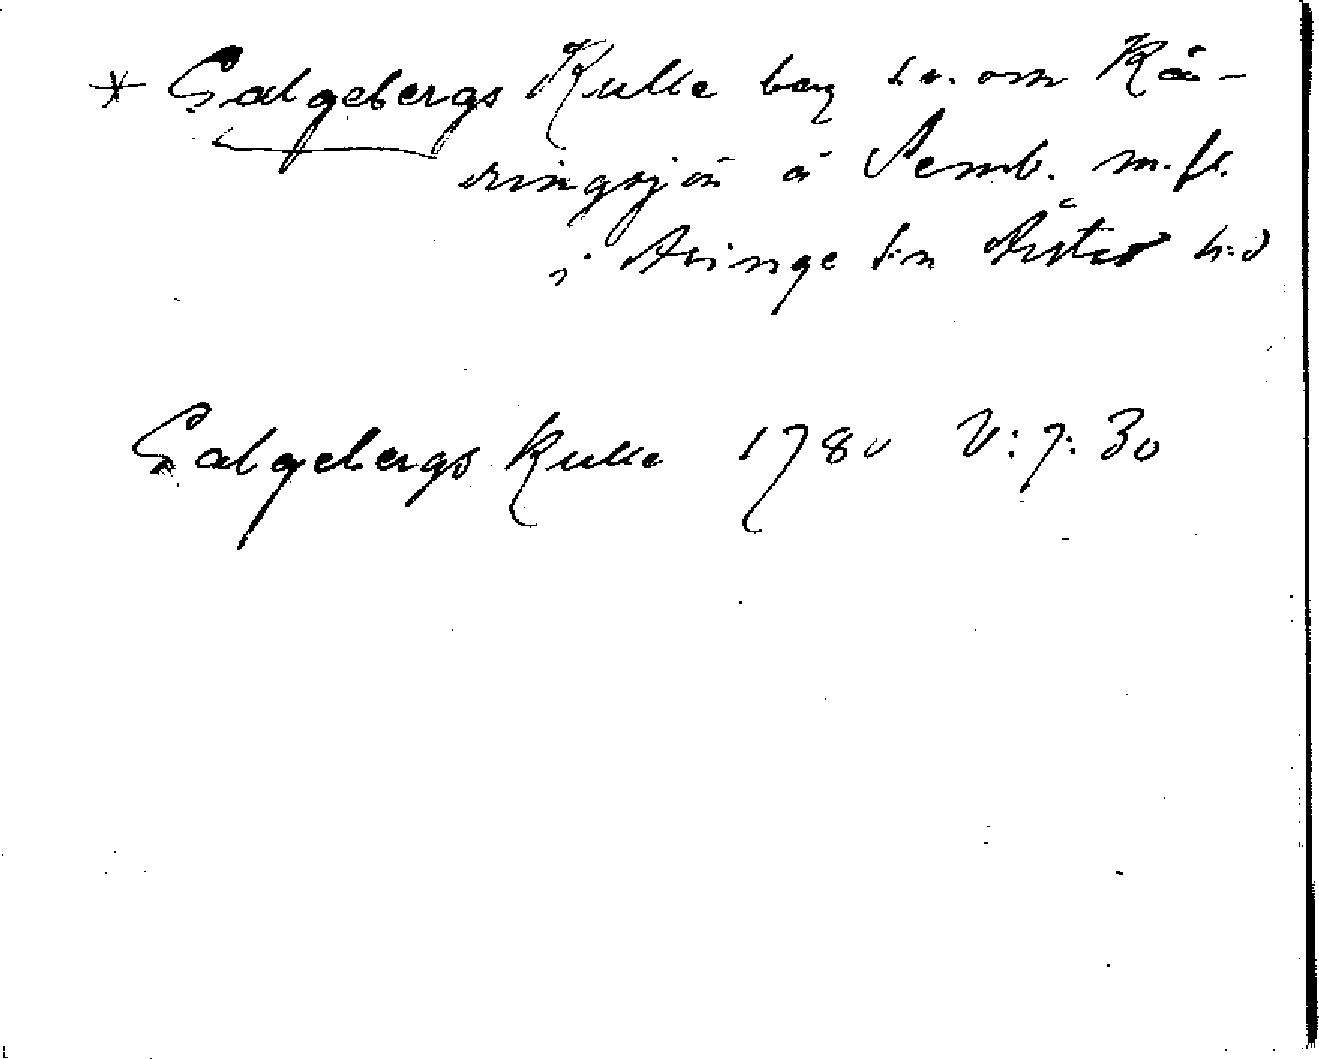 * Galgebergs Kulle berg s.v. om Kä-
ringsjön å Semb. m.fl.
i Svinge sn Årstad h:d
Galgebergs Kulle 1780 V:7:30